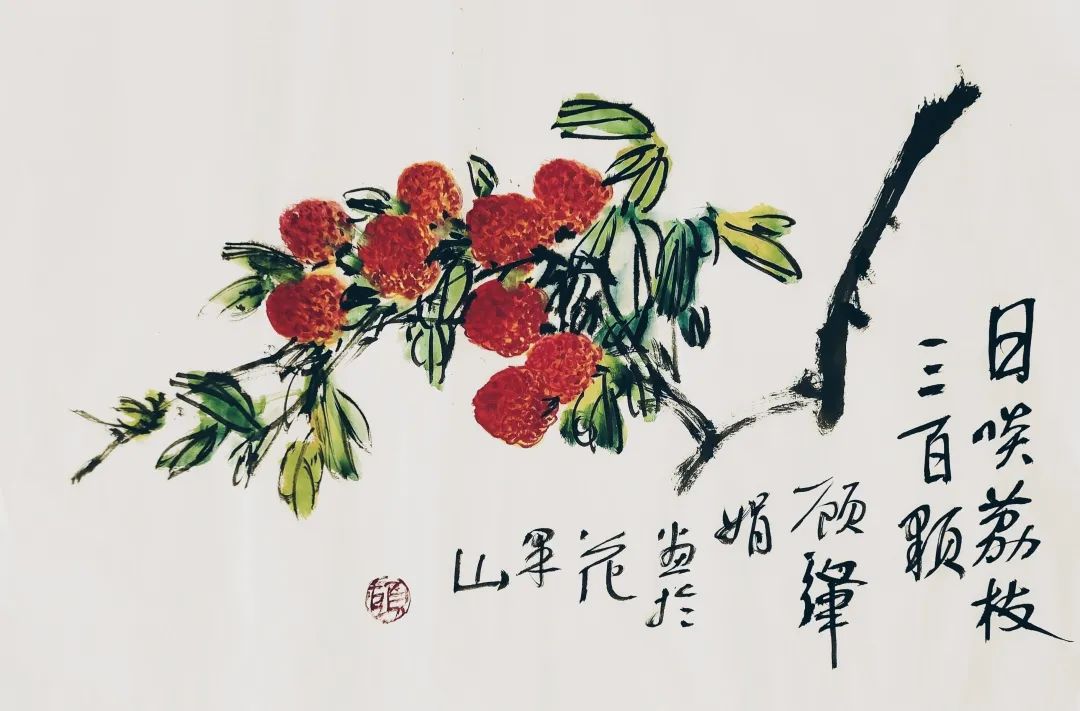 日啖荔枝
三百颗
顾
娟
画於
花
果
山